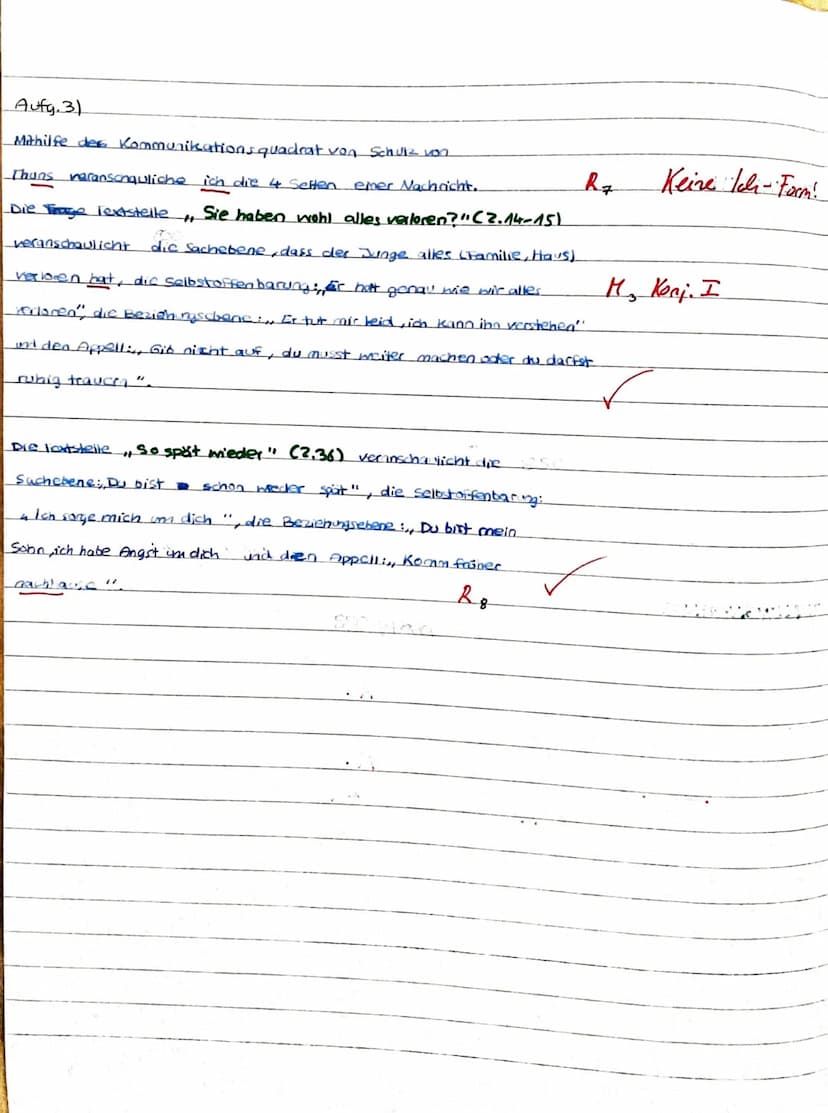 Aufg. 3)
Mithilfe des Kommunikationsquadrat von Schulz von
Thuns veranschauliche ich die 4 Seiten einer Nachricht. R7 Keine Ich-Form!
Die Textstelle „Sie haben wohl alles verloren?" (Z.14-15)
veranschaulicht die Sachebene, dass der Junge alles (Familie, Haus)
verloren hat, die Selbstoffenbarung: „Er hat genau wie wir alles M3 Konj. I
verloren", die Beziehungsebene: „Er tut mir leid, ich kann ihn verstehen"
und den Appell: „Gib nicht auf, du musst weiter machen oder du darfst
ruhig trauern".
Die Textstelle „So spät wieder" (Z.36) veranschaulicht die
Sachebene: „Du bist schon wieder spät", die Selbstoffenbarung:
„Ich sorge mich um dich", die Beziehungsebene: „Du bist mein
Sohn, ich habe Angst um dich und den Appell: „Komm früher
R8